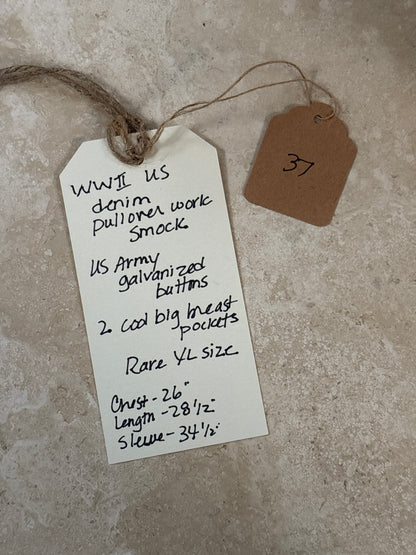 WWII US
denim
pullover work
smock
US Army
galvanized
buttons
2 cool big breast
pockets
Rare XL size
Chest - 26"
Length - 28 1/2"
Sleeve - 34 1/2"
37